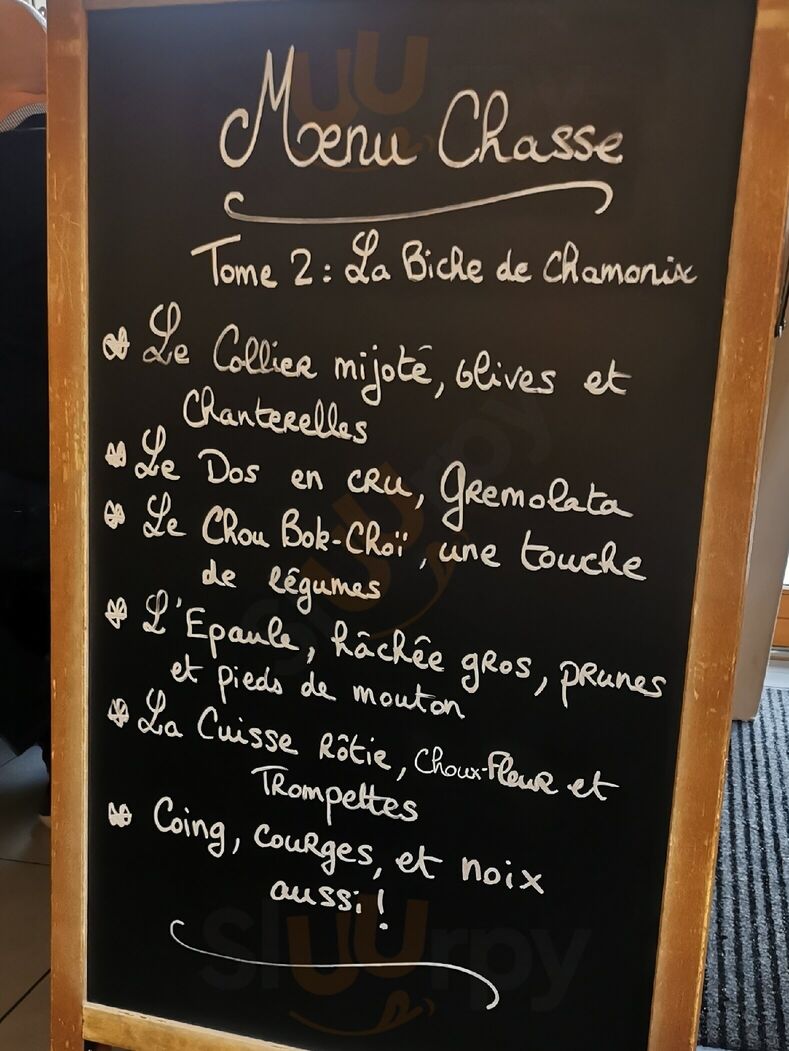 Menu Chasse
Tome 2 : La Biche de Chamonix
Le Collier mijoté, olives et
Chanterelles
Le Dos en cru, Gremolata
Le Chou Bok-Choï, une touche
de légumes
L'Epaule, hâchêe gros, prunes
et pieds de mouton
La Cuisse Rôtie, Choux-Fleur et
Trompettes
Coing, courges, et noix
aussi !
Sluurpy